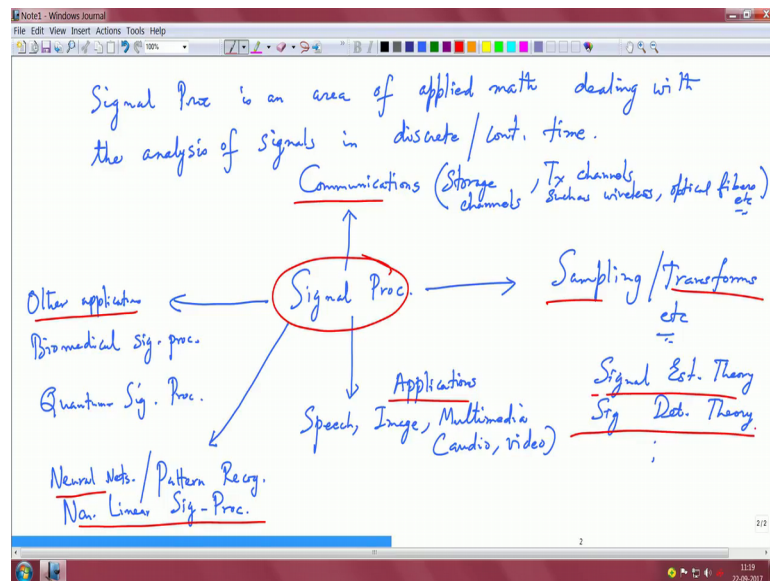 Note1 - Windows Journal
File Edit View Insert Actions Tools Help
100%
Signal Proc is an area of applied math dealing with
the analysis of signals in discrete / cont. time.
Communications (Storage channels, Tx channels such as wireless, optical fibers etc)
Signal Proc.
Sampling / Transforms
etc
Signal Est. Theory
Sig Det. Theory
Other applications
Biomedical sig. proc.
Quantum Sig. Proc.
Applications
Speech, Image, Multimedia
(audio, video)
Neural Nets. / Pattern Recog.
Non. Linear Sig-Proc.
2/2
2
11:19
22-09-2017